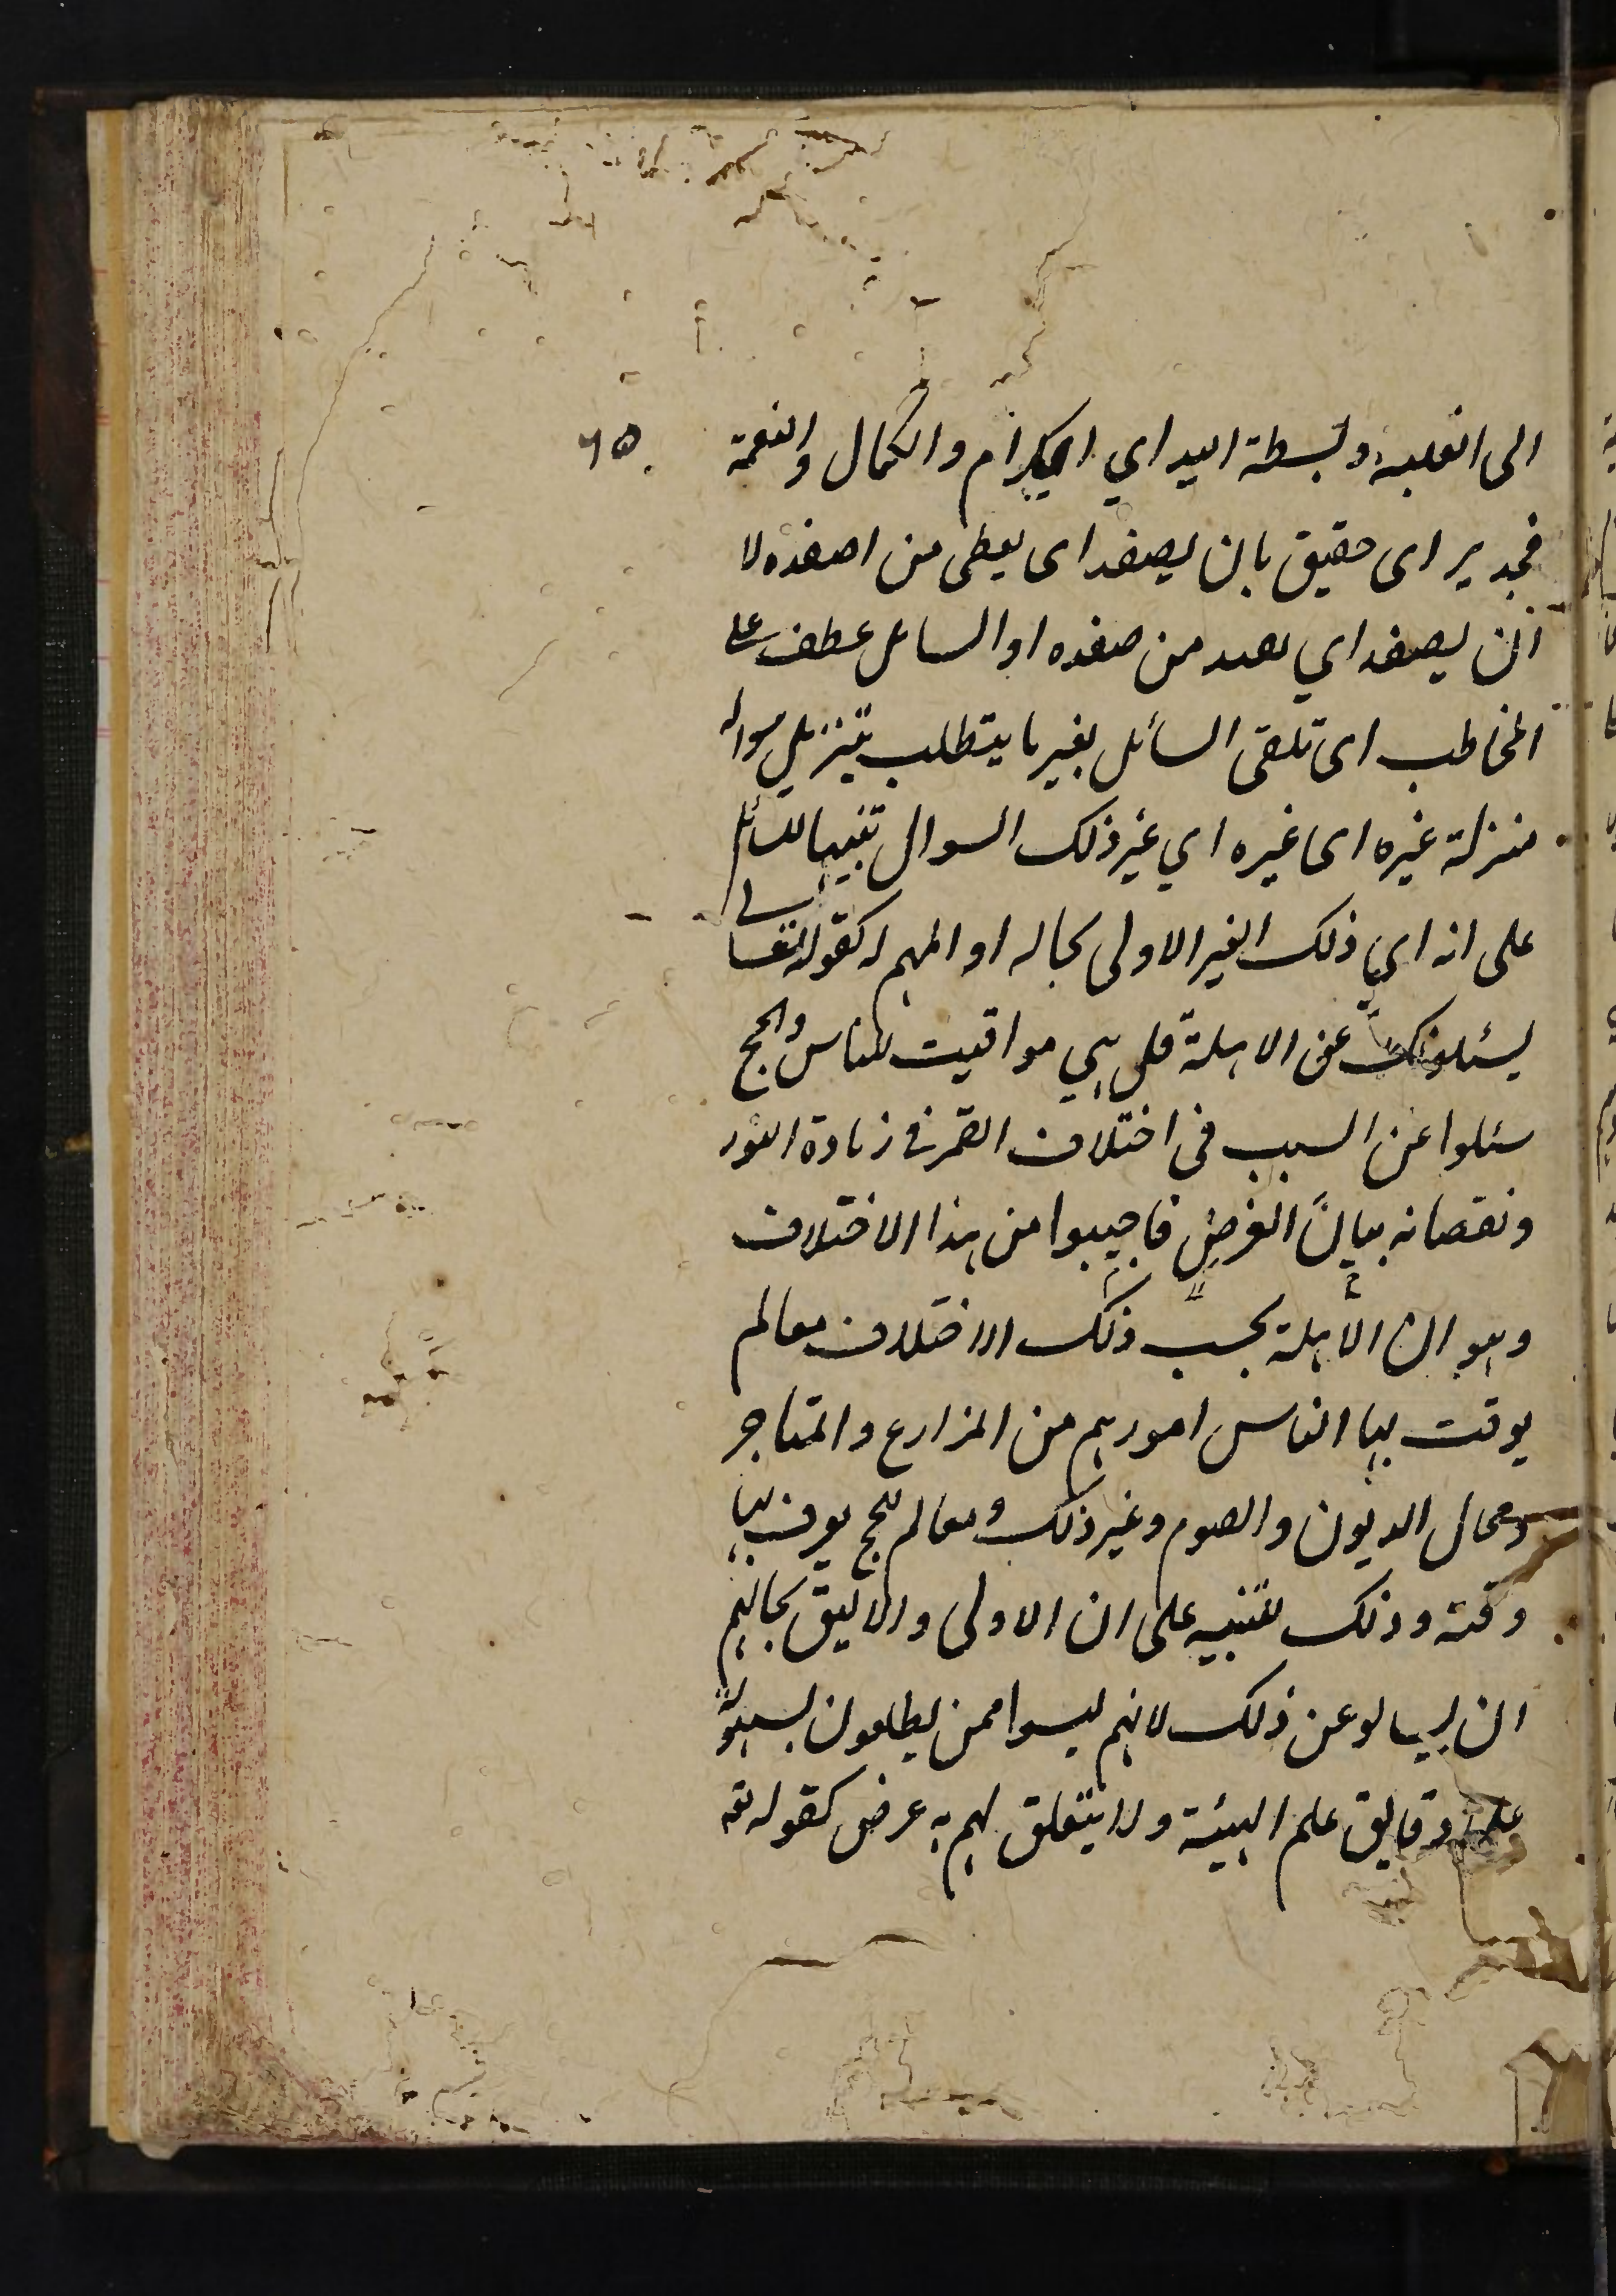 ٦٥
الى الغلبة وبسطة اليد اي الكرام والكمال والنعمة
فجدير اى حقيق بان يصفد اى يعطى من اصفده لا
ان يصفد اي يعيد من صفده او السائل عطف على
المخاطب اى تلقى السائل بغير ما يتطلب بتنزيل سواله
منزلة غيره اى غيره اي غير ذلك السوال تنبيها للسائل
على انه اي ذلك الغير الاولى بحاله او المهم له كقوله تعالى
يسئلونك عن الاهلة قل هي مواقيت للناس والحج
سئلوا عن السبب فى اختلاف القمر فى زيادة النور
ونقصانه بيان الغرض فاجيبوا من هذا الاختلاف
وهو ان الأهلة بحسب ذلك الاختلاف معالم
يوقت بها الناس امورهم من المزارع والمتاجر
ومحال الديون والصوم وغير ذلك ومعالم للحج يعرف بها
وقته وذلك للتنبيه على ان الاولى والاليق بحالهم
ان يسالو عن ذلك لانهم ليسوا ممن يطلعون بسهولة
على دقايق علم الهيئة ولا يتعلق لهم به عرض كقوله تعه